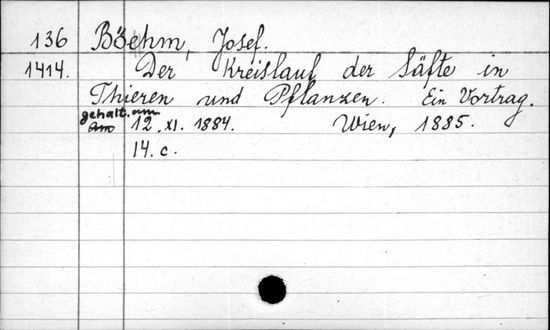 136 Böehm, Josef.
1414. Der Kreislauf der Säfte in
Thieren und Pflanzen. Ein Vortrag.
gehalt. am
12. XI. 1884. Wien, 1885.
14. c.